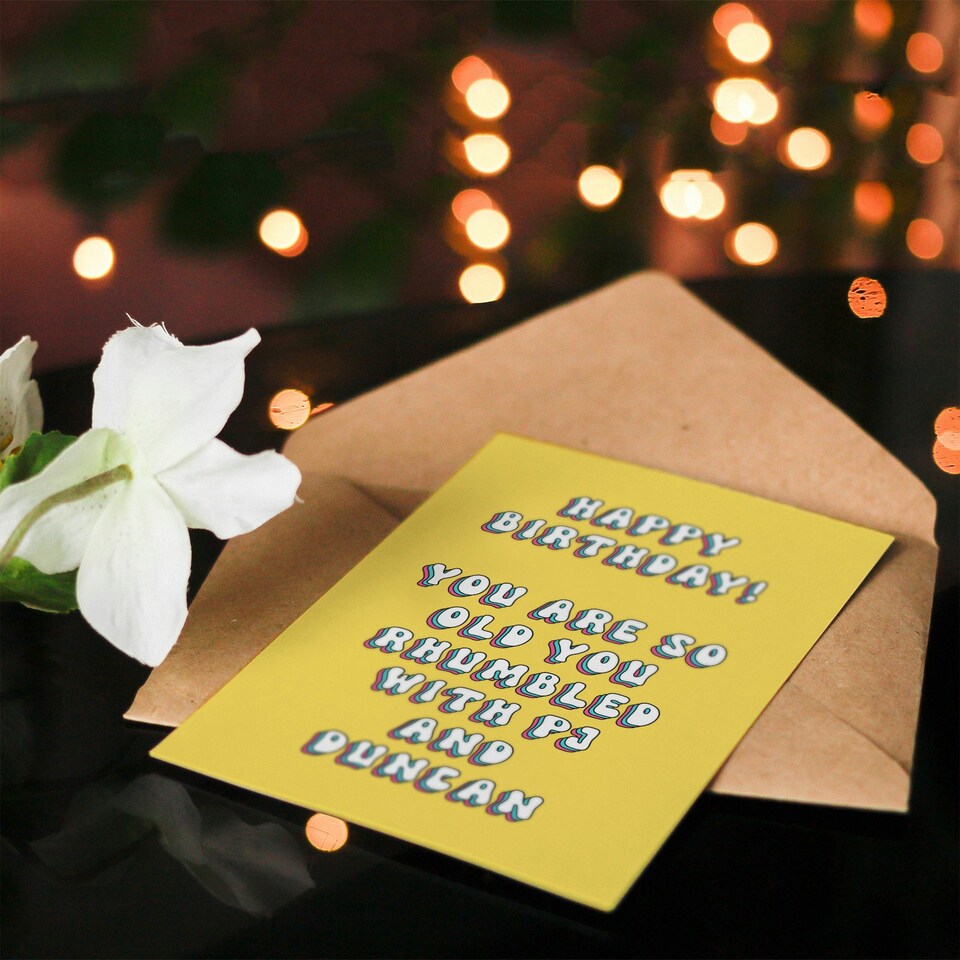 HAPPY
BIRTHDAY!
YOU ARE SO
OLD YOU
RHUMBLED
WITH PJ
AND
DUNCAN